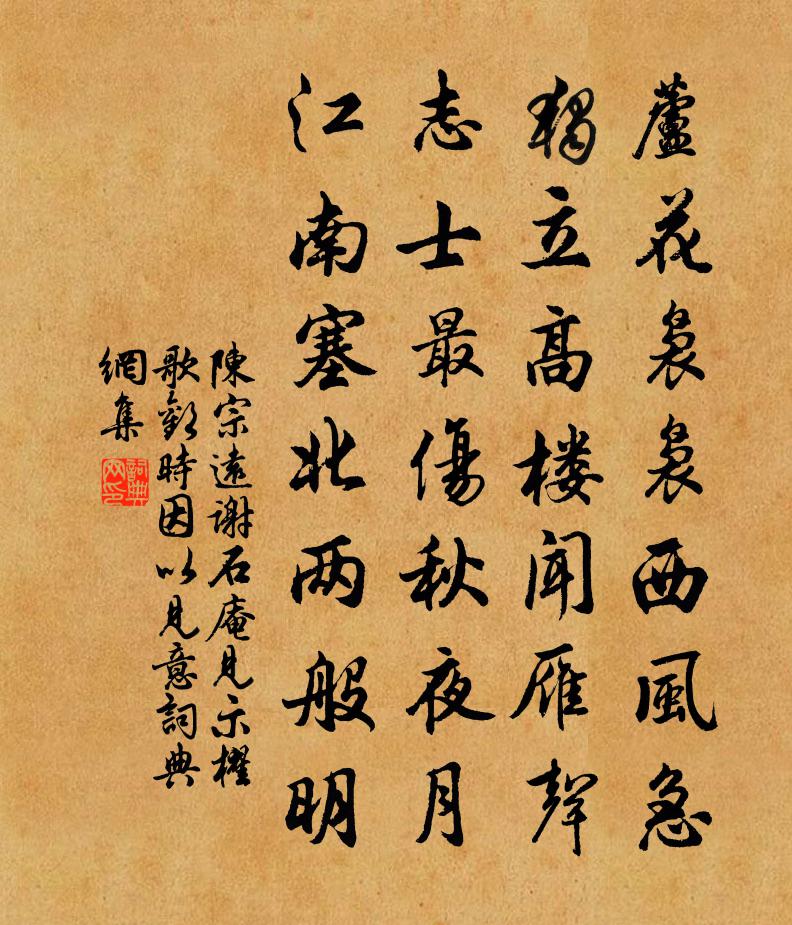 蘆花裊裊西風急
獨立高楼聞雁聲
志士最傷秋夜月
江南塞北两般明
陳宗遠謝石庵見示櫂
歌歎時因以見意詞典
網集
詞典
网印